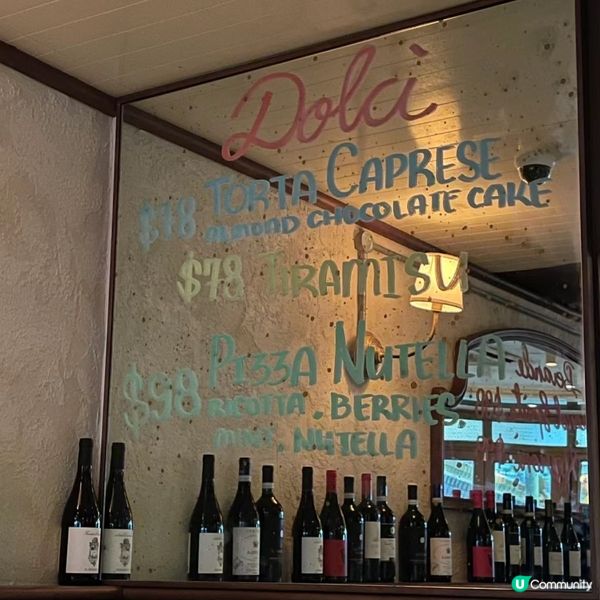 Dolci
$78 TORTA CAPRESE
ALMOND CHOCOLATE CAKE
$78 TIRAMISU
$98 PIZZA NUTELLA
RICOTTA, BERRIES,
MINT, NUTELLA
U Community